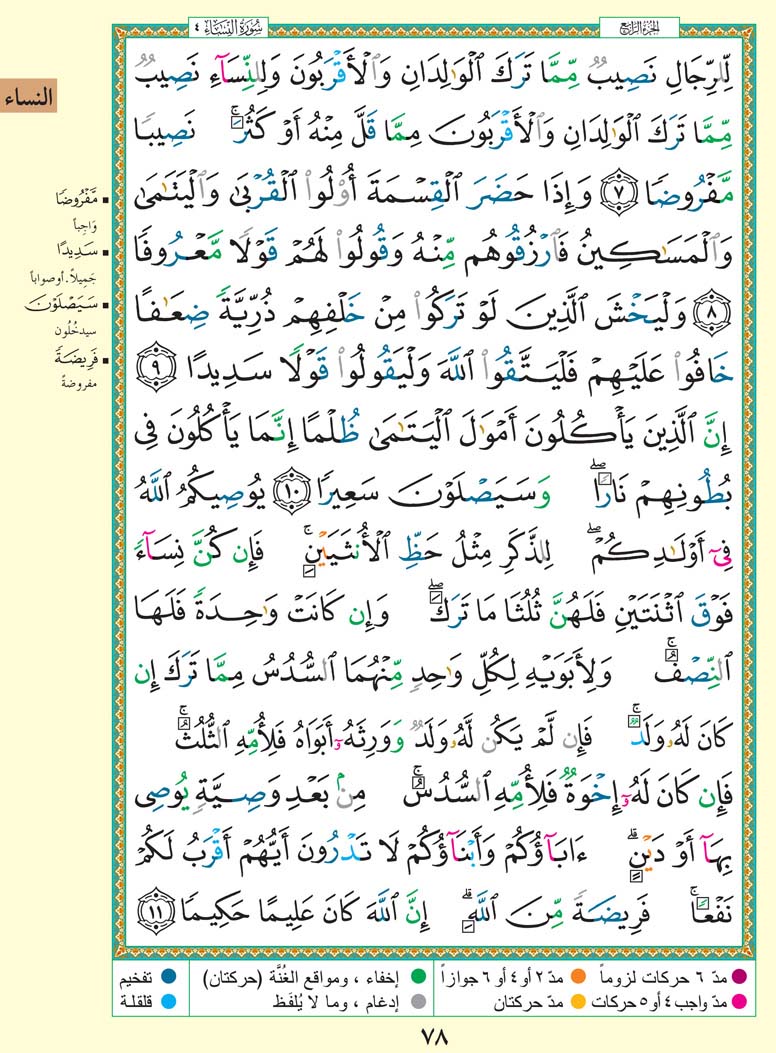 سُورَةُ النِّسَاءِ ٤
الجزء الرابع
لِّلرِّجَالِ نَصِيبٌ مِّمَّا تَرَكَ الْوَٰلِدَانِ وَالْأَقْرَبُونَ وَلِلنِّسَآءِ نَصِيبٌ
مِّمَّا تَرَكَ الْوَٰلِدَانِ وَالْأَقْرَبُونَ مِمَّا قَلَّ مِنْهُ أَوْ كَثُرَ ۚ نَصِيبًا
مَّفْرُوضًا ٧ وَإِذَا حَضَرَ الْقِسْمَةَ أُو۟لُوا۟ الْقُرْبَىٰ وَالْيَتَٰمَىٰ
وَالْمَسَٰكِينُ فَارْزُقُوهُم مِّنْهُ وَقُولُوا۟ لَهُمْ قَوْلًا مَّعْرُوفًا
٨ وَلْيَخْشَ الَّذِينَ لَوْ تَرَكُوا۟ مِنْ خَلْفِهِمْ ذُرِّيَّةً ضِعَٰفًا
خَافُوا۟ عَلَيْهِمْ فَلْيَتَّقُوا۟ اللَّهَ وَلْيَقُولُوا۟ قَوْلًا سَدِيدًا ٩
إِنَّ الَّذِينَ يَأْكُلُونَ أَمْوَٰلَ الْيَتَٰمَىٰ ظُلْمًا إِنَّمَا يَأْكُلُونَ فِى
بُطُونِهِمْ نَارًا ۖ وَسَيَصْلَوْنَ سَعِيرًا ١٠ يُوصِيكُمُ اللَّهُ
فِىٓ أَوْلَٰدِكُمْ ۖ لِلذَّكَرِ مِثْلُ حَظِّ الْأُنثَيَيْنِ ۚ فَإِن كُنَّ نِسَآءً
فَوْقَ اثْنَتَيْنِ فَلَهُنَّ ثُلُثَا مَا تَرَكَ ۖ وَإِن كَانَتْ وَٰحِدَةً فَلَهَا
النِّصْفُ ۚ وَلِأَبَوَيْهِ لِكُلِّ وَٰحِدٍ مِّنْهُمَا السُّدُسُ مِمَّا تَرَكَ إِن
كَانَ لَهُۥ وَلَدٌ ۚ فَإِن لَّمْ يَكُن لَّهُۥ وَلَدٌ وَوَرِثَهُۥٓ أَبَوَاهُ فَلِأُمِّهِ الثُّلُثُ ۚ
فَإِن كَانَ لَهُۥٓ إِخْوَةٌ فَلِأُمِّهِ السُّدُسُ ۚ مِنۢ بَعْدِ وَصِيَّةٍ يُوصِى
بِهَآ أَوْ دَيْنٍ ۗ ءَابَآؤُكُمْ وَأَبْنَآؤُكُمْ لَا تَدْرُونَ أَيُّهُمْ أَقْرَبُ لَكُمْ
نَفْعًا ۚ فَرِيضَةً مِّنَ اللَّهِ ۗ إِنَّ اللَّهَ كَانَ عَلِيمًا حَكِيمًا ١١
النساء
مَّفْرُوضًا
وَاجِباً
سَدِيدًا
جَمِيلاً. أوصواباً
سَيَصْلَوْنَ
سيدخُلون
فَرِيضَةً
مفروضةً
مدّ ٦ حركات لزوماً مدّ ٢ أو ٤ أو ٦ جوازاً إخفاء ، ومواقع الغُنَّة (حركتان) تفخيم
مدّ واجب ٤ أو ٥ حركات مدّ حركتان إدغام ، وما لا يُلفَظ قلقلة
٧٨